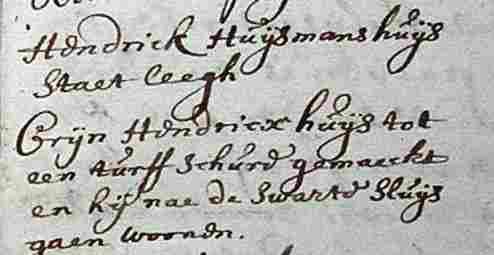 Hendrick Huijsmans huijs
staet leegh
Crijn Hendricx huijs tot
een turff schure gemaeckt
en hij nae de Swarte Sluijs
gaen woonen.